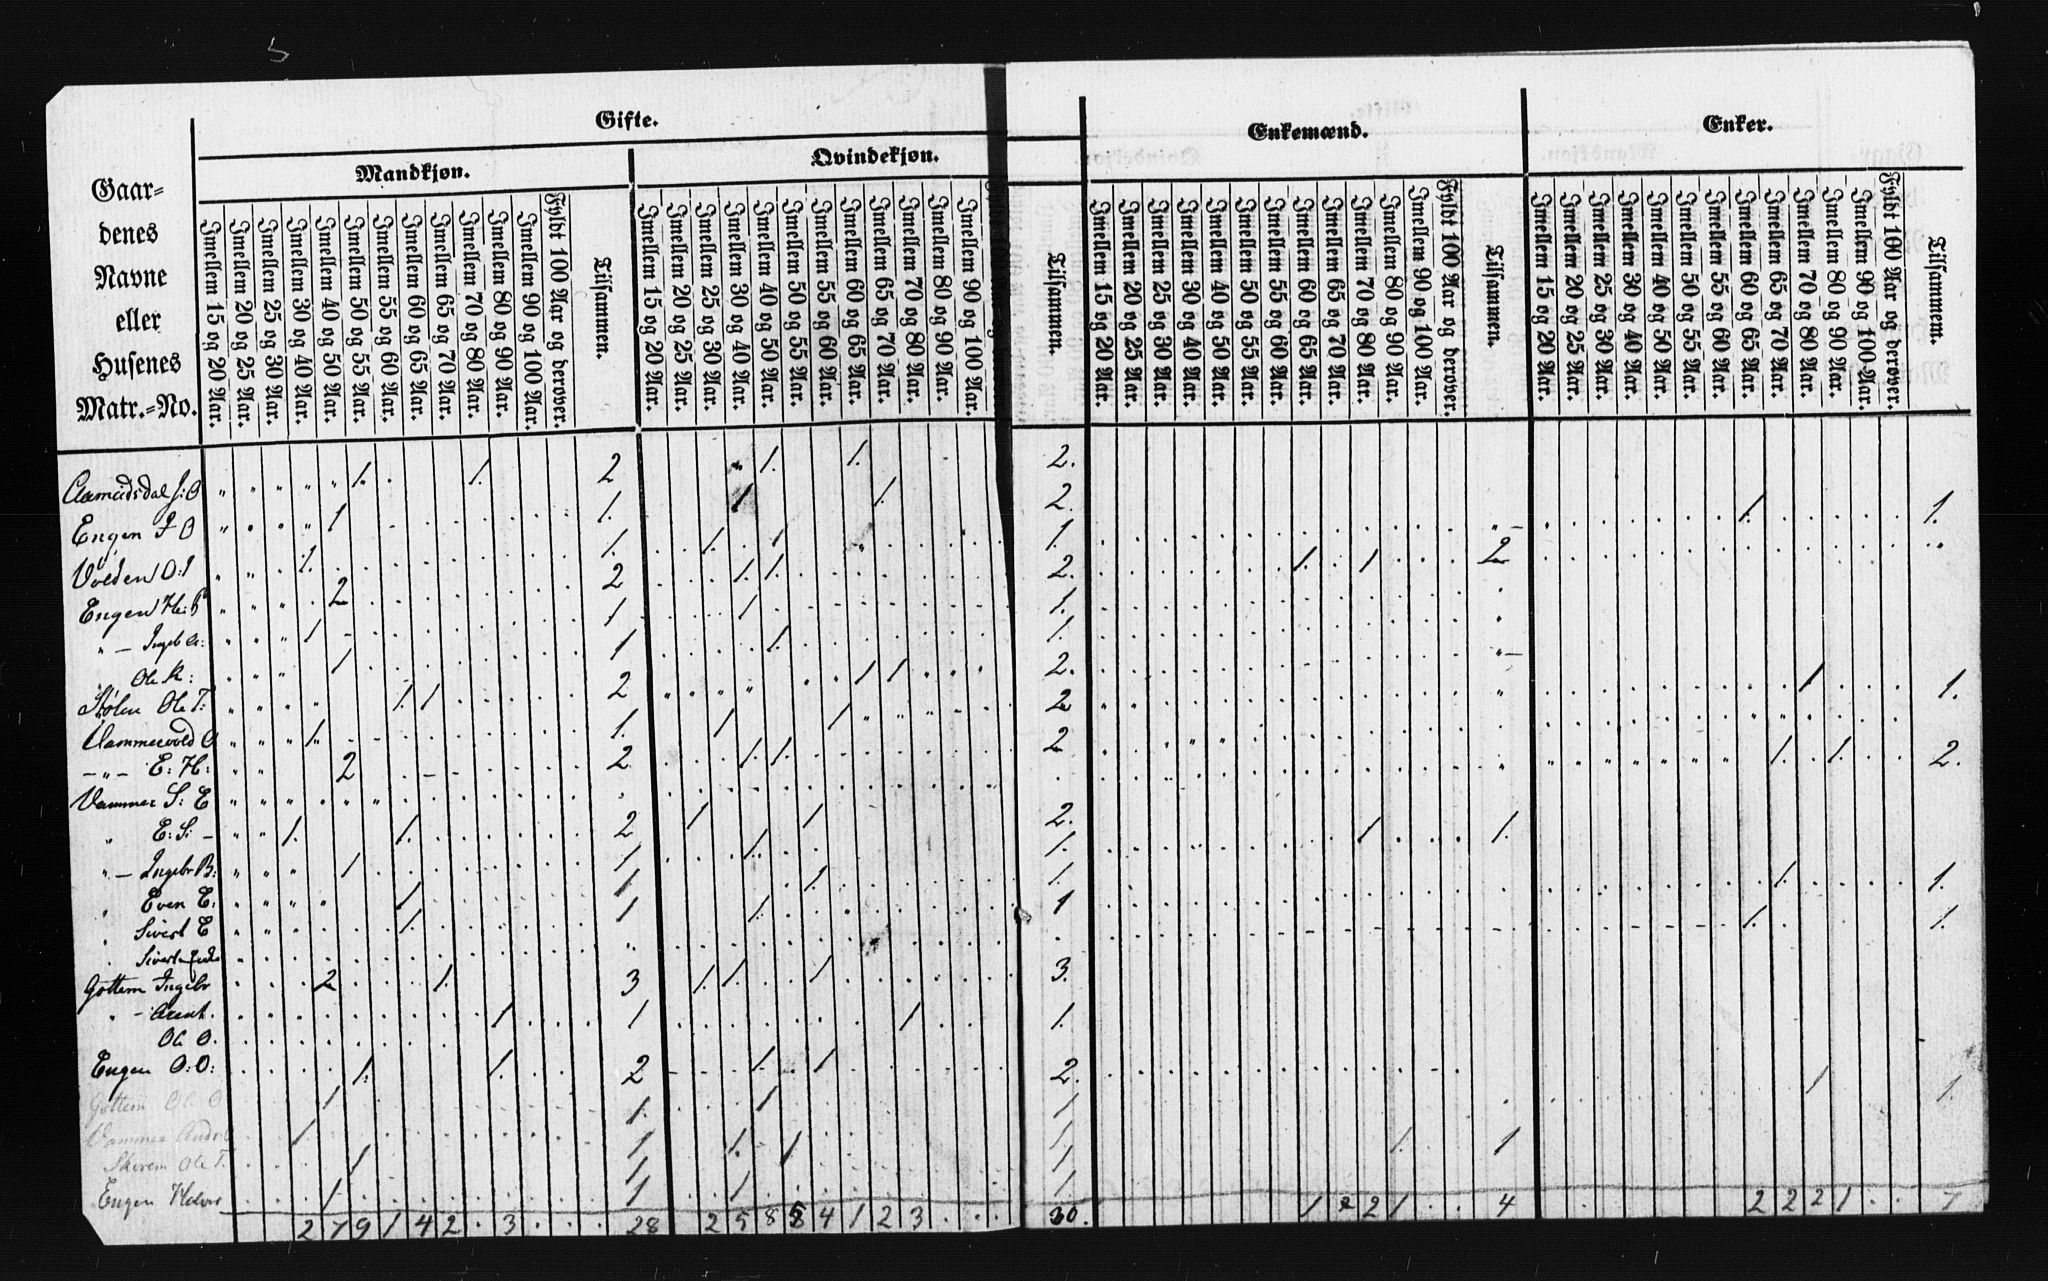 Gifte.
Enkemænd.
Enker.
Mandkjøn.
Qvindekjøn.
Gaar=
denes
Navne
eller
Husenes
Matr.=No.
Imellem 15 og 20 Aar.
Imellem 20 og 25 Aar.
Imellem 25 og 30 Aar.
Imellem 30 og 40 Aar.
Imellem 40 og 50 Aar.
Imellem 50 og 55 Aar.
Imellem 55 og 60 Aar.
Imellem 60 og 65 Aar.
Imellem 65 og 70 Aar.
Imellem 70 og 80 Aar.
Imellem 80 og 90 Aar.
Imellem 90 og 100 Aar.
Fyldt 100 Aar og derover.
Tilsammen.
Imellem 15 og 20 Aar.
Imellem 20 og 25 Aar.
Imellem 25 og 30 Aar.
Imellem 30 og 40 Aar.
Imellem 40 og 50 Aar.
Imellem 50 og 55 Aar.
Imellem 55 og 60 Aar.
Imellem 60 og 65 Aar.
Imellem 65 og 70 Aar.
Imellem 70 og 80 Aar.
Imellem 80 og 90 Aar.
Imellem 90 og 100 Aar.
Tilsammen.
Imellem 15 og 20 Aar.
Imellem 20 og 25 Aar.
Imellem 25 og 30 Aar.
Imellem 30 og 40 Aar.
Imellem 40 og 50 Aar.
Imellem 50 og 55 Aar.
Imellem 55 og 60 Aar.
Imellem 60 og 65 Aar.
Imellem 65 og 70 Aar.
Imellem 70 og 80 Aar.
Imellem 80 og 90 Aar.
Imellem 90 og 100 Aar.
Fyldt 100 Aar og derover.
Tilsammen.
Imellem 15 og 20 Aar.
Imellem 20 og 25 Aar.
Imellem 25 og 30 Aar.
Imellem 30 og 40 Aar.
Imellem 40 og 50 Aar.
Imellem 50 og 55 Aar.
Imellem 55 og 60 Aar.
Imellem 60 og 65 Aar.
Imellem 65 og 70 Aar.
Imellem 70 og 80 Aar.
Imellem 80 og 90 Aar.
Imellem 90 og 100 Aar.
Fyldt 100 Aar og derover.
Tilsammem.
1. 1. 2 1. 1. 2.
Engen 1 1. 1 1. 2. 1. 1.
Volden O:I 1. 1. 1. 1 1. 1 1 2
Engen 2 2 1. 1. 2.
" — Ingeb 1 1 1 1.
Ole 1 1 1. 1.
Stølen Ole T: 1. 1 2 1 1 2. 1 1.
Vammervold O 1. 1. 1 1 2
— " — E: H: 2 2 1. 1. 2 1. 1. 2.
Vammer S: E
" E: S: — 1. 1. 2 1 1 2. 1 1.
" — Ingebr B: 1 1 1. 1.
" Even E: 1 1 1. 1. 1 1.
Sivert E 1. 1 1. 1 1. 1.
Sivert
Gottem Ingebr 2 1. 3 1. 1. 1 3.
" — Arent. 1 1 1. 1.
Ole O.
Engen O: O: 1. 1. 2 1. 1 2. 1 1.
Gottem Ole O 1 1. 1 1
Vammer 1. 1 1. 1 1 1. 1
Skorem Ole T. 1 1 1
Engen 1 1 1 1
2 7 9 1 4 2 . 3 . . . 28 2 5 8 5 4 1 2 3 . . . 30. 1 2 2 1 . . 4 2 2 2 1 . . 7